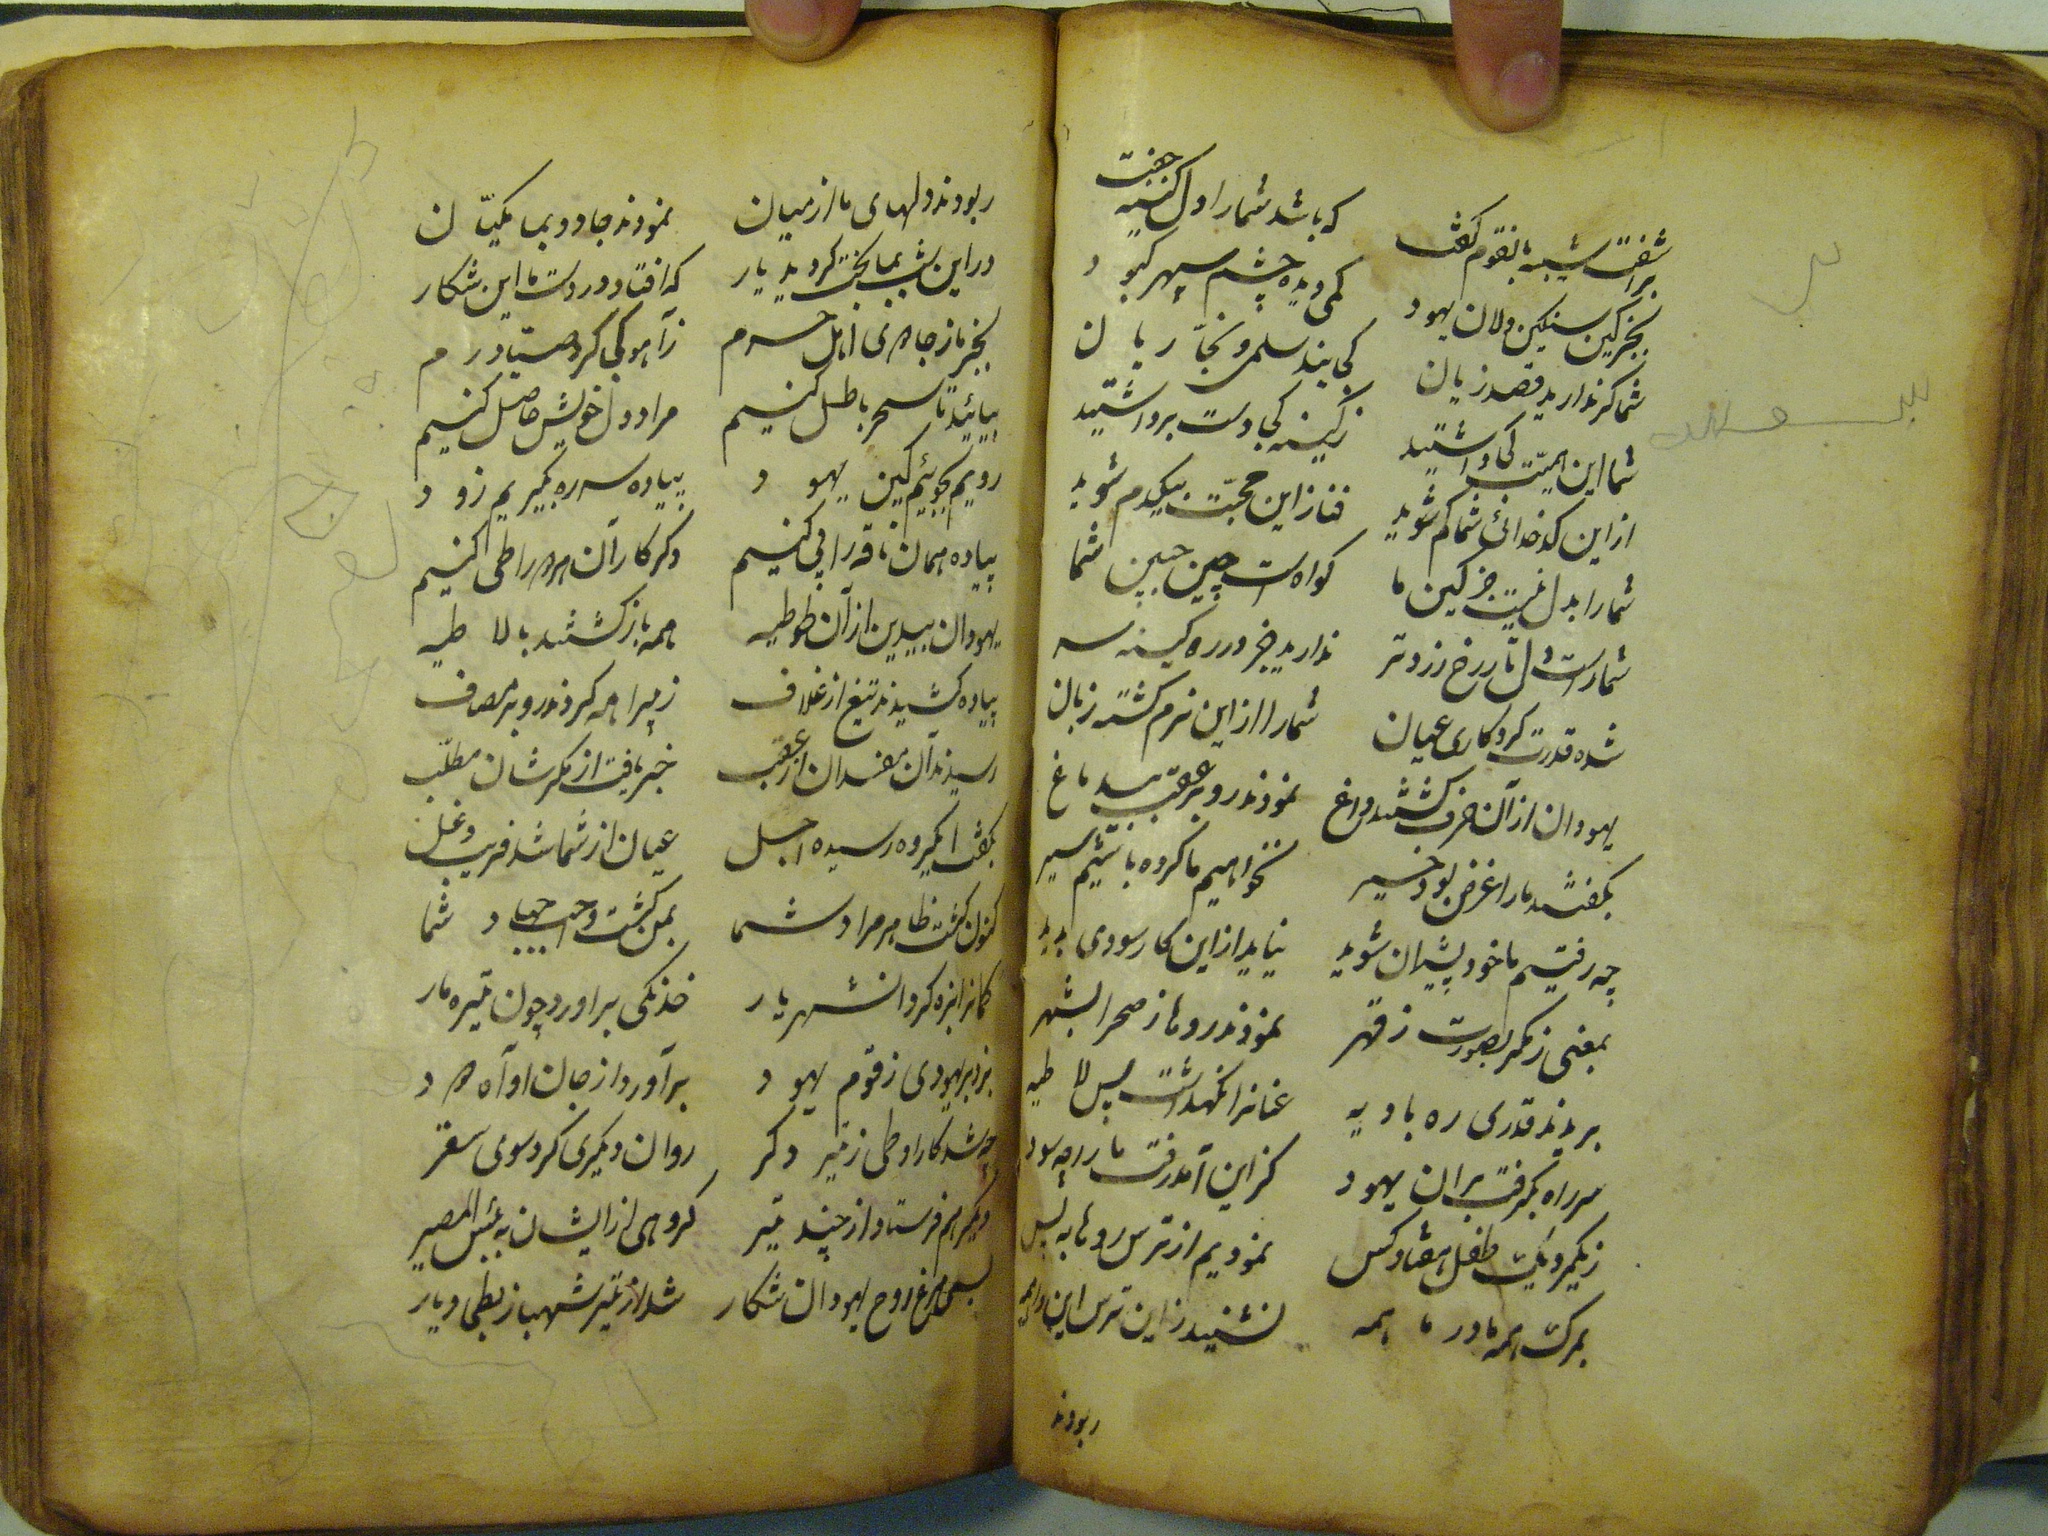 برآشفت شیبه بانقوم گفت که باشد شما را دل کینه جفت
بجز کین سنکین دلان یهود کی دیده چشم سپهر کبود
شما گر ندارید قصد زیان کی بند سلمی و نجار یان
شما این حمیت کجا داشتید ز کینه کی دست برداشتید
از این کدخدائی شما کم شوید فنا زاین محبت بیکدم شوید
شما را بدل نیست جز کین ما کواه است چین جبین شما
شما راست دل تار رخ زرد تر ندارید جز در ره کینه سر
شده قدرت کردکاری عیان شما را از این نرم کشته زبان
یهودان از آن حرف کشتند داغ نمودند رو بر عقب بیدماغ
بکفتند ما را غرض بود خیر نخواهیم ما کرده باشیم سیر
چه رفتیم ما خود پشیمان شوید نیاید از این کار سودی پدید
بمعنی ز مکر بصورت ز قهر نمودند روها ز صحرا بشهر
بریدند قدری ره بادیه عنانرا نکهداشت پس لاطیه
سر راه بکرفت بر ان یهود کز این آمد رفت ما را چه سود
ز یکمرد یک طفل هفتاد کس نمودیم از ترس روها به پس
بمرک همه مادر ما همه نشنید زاین ترس این واهمه
ربودند
ربودند دلهای ما از میان نمودند جادو بما یکیّان
در این شب بما بخت کردید یار که افتاد در دست ما این شکار
بجز باز جادوی اهل حرم ز آهو کی کرد صیاد رم
بیائید تا سحر باطل کنیم مراد دل خویش حاصل کنیم
رویم بجوئیم کین یهود پیاده سر ره بکیریم زود
پیاده همان ناقه را پی کنیم دکر کار آن هر دو را طی کنیم
یهودان بیدین از آن طوطیه همه باز کشتند با لاطیه
پیاده کشیدند تیغ از غلاف ز هیرا همه کردند رو بر مصاف
رسیدند آن مفسدان از عقب خبر یافت از مکرشان مطلّب
بکفت ایکروه رسیده اجل عیان از شما شد فریب و دغل
کنون کشت ظاهر مراد شما بمن کشت واجب جهاد شما
کمانرا بزه کرد انشهریار خدنکی براورد چون تیره مار
بزد بر یهودی ز قوم یهود برآورد از جان او آه دود
چه شد کار او طی ز تیر دکر روان دیکری کرد سوی سقر
دیکر هم فرستاد از چند تیر کروهی از ایشان به بئس المصیر
بسی مرغ روح یهودان شکار شد از تیر شهباز بطی دیار